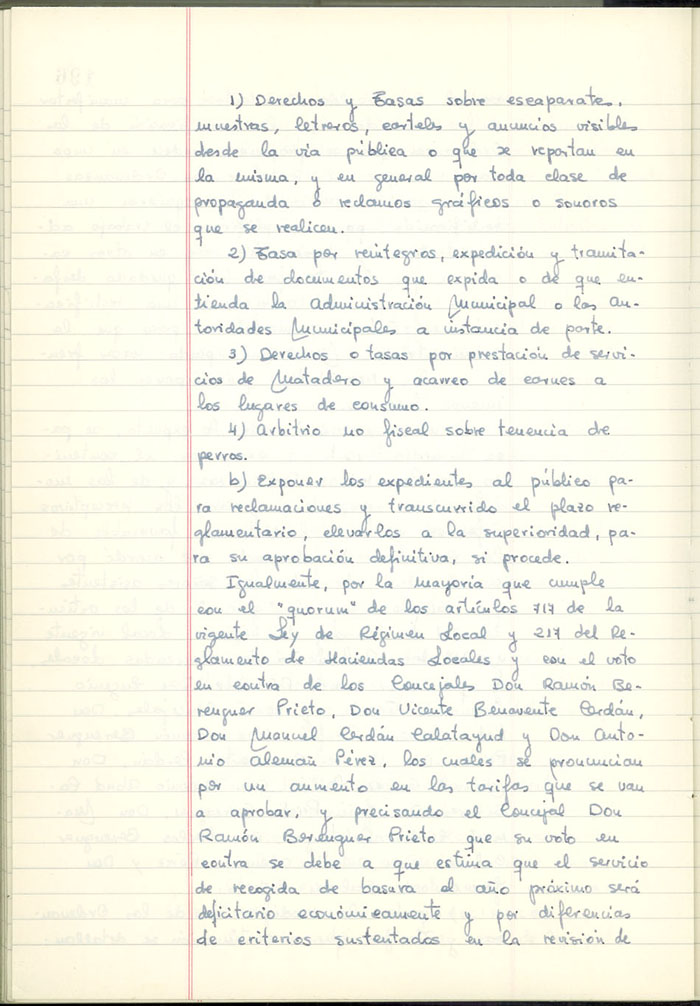 1) Derechos y Tasas sobre escaparates,
muestras, letreros, carteles y anuncios visibles
desde la vía pública o que se reportan en
la misma, y en general por toda clase de
propaganda o reclamos gráficos o sonoros
que se realicen.
2) Tasa por reintegros, expedición y tramita-
ción de documentos que expida o de que en-
tienda la Administración Municipal o las Au-
toridades Municipales a instancia de parte.
3) Derechos o tasas por prestación de servi-
cios de Matadero y acarreo de carnes a
los lugares de consumo.
4) Arbitrio no fiscal sobre tenencia de
perros.
b) Exponer los expedientes al público pa-
ra reclamaciones y transcurrido el plazo re-
glamentario, elevarlos a la superioridad, pa-
ra su aprobación definitiva, si procede.
Igualmente, por la mayoría que cumple
con el "quorum" de los artículos 717 de la
vigente Ley de Régimen Local y 217 del Re-
glamento de Haciendas Locales y con el voto
en contra de los Concejales Don Ramón Be-
renguer Prieto, Don Vicente Benavente Cerdán,
Don Manuel Cerdán Calatayud y Don Anto-
nio Alemañ Pérez, los cuales se pronuncian
por un aumento en las tarifas que se van
a aprobar, y precisando el Concejal Don
Ramón Berenguer Prieto que su voto en
contra se debe a que estima que el servicio
de recogida de basura el año próximo será
deficitario económicamente y por diferencias
de criterios sustentados en la revisión de